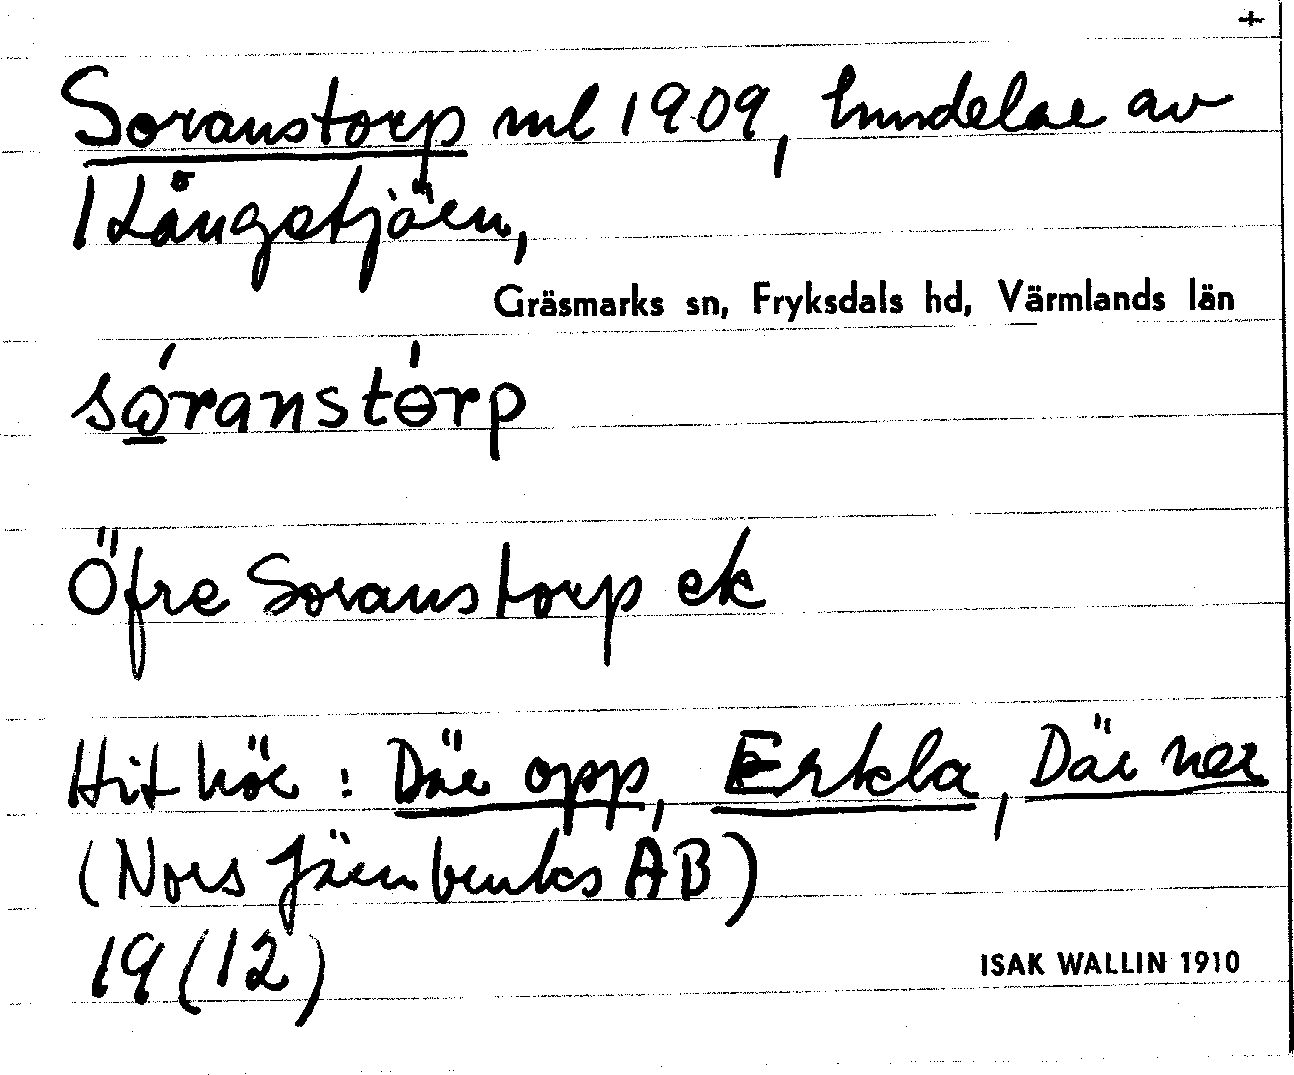 +
Soranstorp ml 1909, hmdelar av
1 Långetjärn,
Gräsmarks sn, Fryksdals hd, Värmlands län
sώ̲ranstɵ́rp
Öfre Soranstorp ek
Hit hör : Där opp, Erkla, Där ner
(Nors Järnbruks AB)
19 (12)
ISAK WALLIN 1910